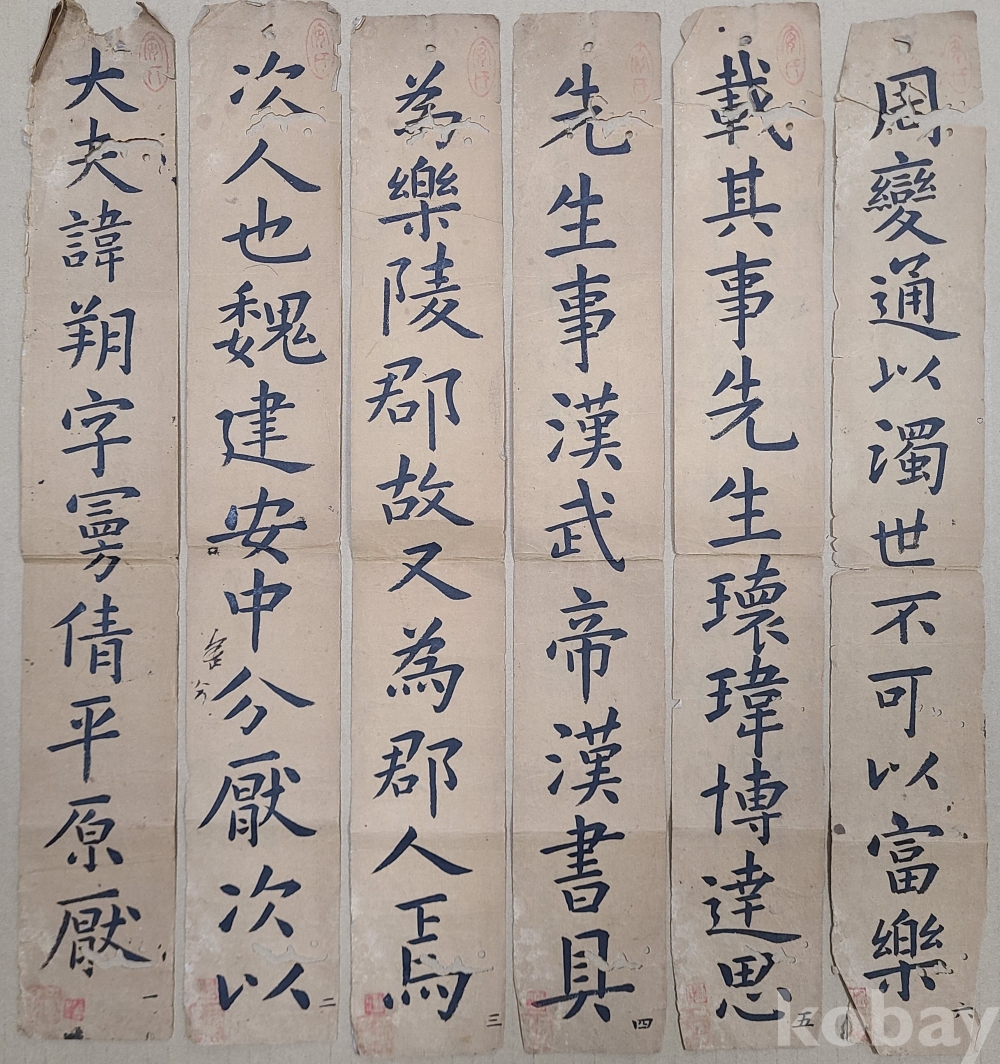 大夫諱朔字曼倩平原厭
一
次人也魏建安中分厭次以
二
為樂陵郡故又為郡人焉
三
先生事漢武帝漢書具
四
載其事先生瓌瑋博達思
五
周變通以濁世不可以富樂
六
kobay